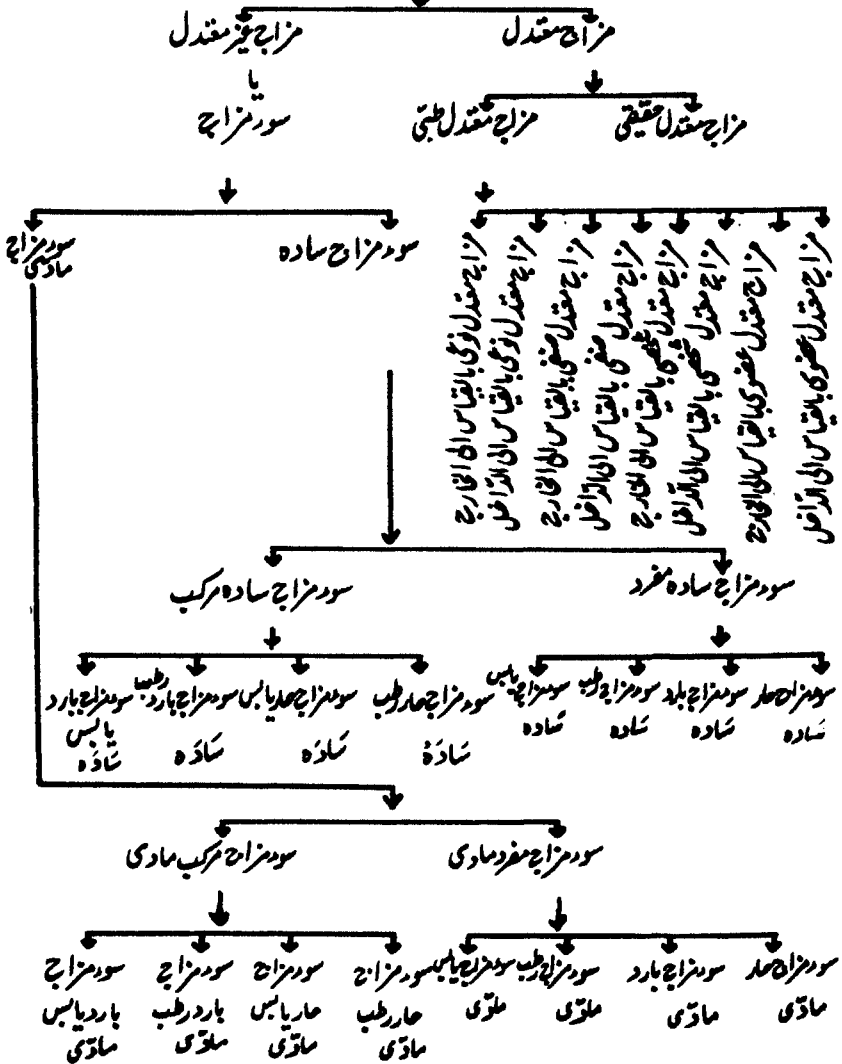 مزاج معتدل
مزاج غیر معتدل
یا
سوء مزاج
مزاج معتدل حقیقی
مزاج معتدل طبّی
مزاج معتدل عضوی بالقیاس الی الدّاخل
مزاج معتدل عضوی بالقیاس الی الخارج
مزاج معتدل شخصی بالقیاس الی الدّاخل
مزاج معتدل شخصی بالقیاس الی الخارج
مزاج معتدل صنفی بالقیاس الی الدّاخل
مزاج معتدل صنفی بالقیاس الی الخارج
مزاج معتدل نوعی بالقیاس الی الدّاخل
مزاج معتدل نوعی بالقیاس الی الخارج
سوء مزاج سادہ
سوء مزاج
مادّی
سوء مزاج سادہ مفرد
سوء مزاج سادہ مرکب
سوء مزاج حار
سَادہ
سوء مزاج بارد
سَادہ
سوء مزاج رطب
سَادہ
سوء مزاج یابس
سَادہ
سوء مزاج حار رطب
سَادَہ
سوء مزاج حار یابس
سَادَہ
سوء مزاج بارد رطب
سَادَہ
سوء مزاج بارد
یابس
سَادَہ
سوء مزاج مفرد مادی
سوء مزاج مرکب مادی
سوء مزاج حار
مادّی
سوء مزاج بارد
مادّی
سوء مزاج رطب
مادّی
سوء مزاج یابس
مادّی
سوء مزاج
حار رطب
مادّی
سوء مزاج
حار یابس
مادّی
سوء مزاج
بارد رطب
مادّی
سوء مزاج
بارد یابس
مادّی